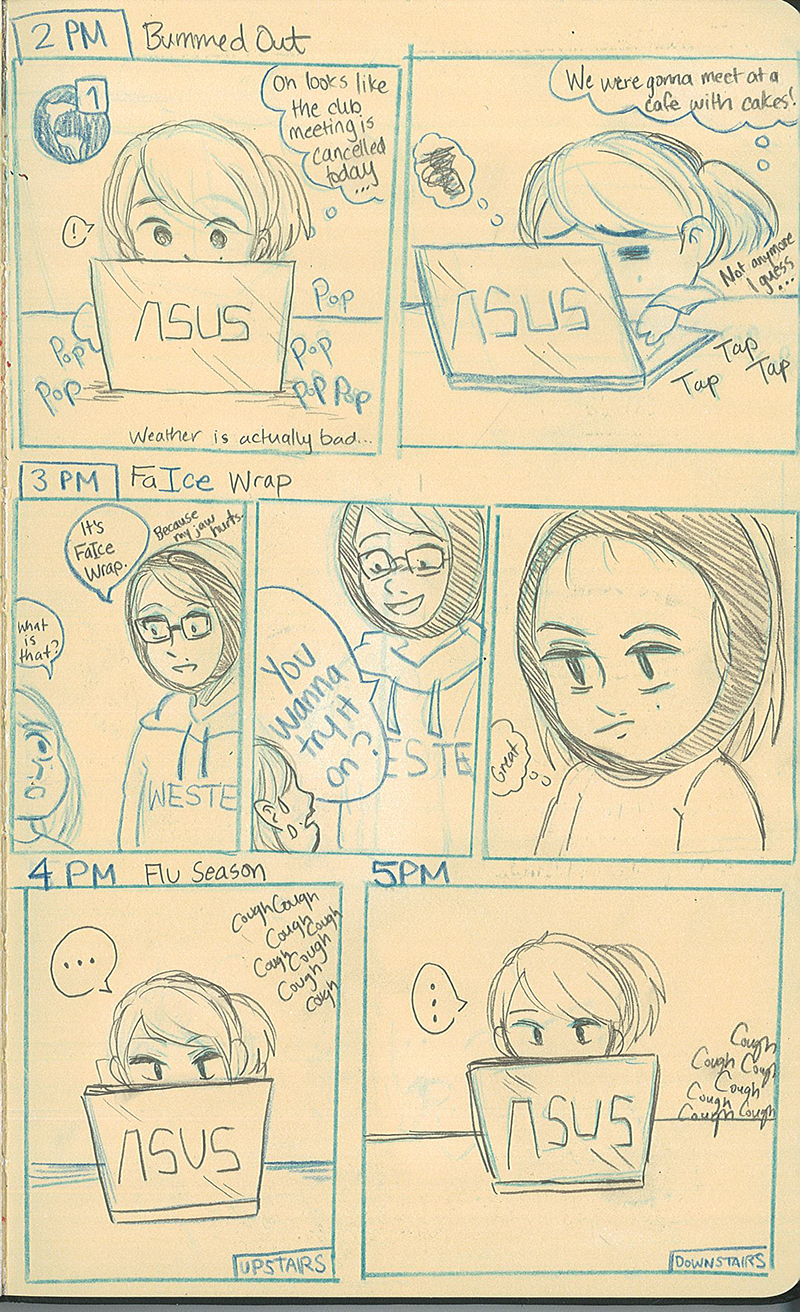 2 PM Bummed Out
1
Oh looks like
the club
meeting is
cancelled
today
...
!
ASUS
Pop
Pop
Pop
Pop
Pop Pop
Weather is actually bad...
We were gonna meet at a
cafe with cakes!
ASUS
Not anymore
I guess
...
Tap
Tap
Tap
3 PM FaIce Wrap
It's
FaIce
Wrap.
Because
my jaw
hurts.
What
is
that?
WESTE
You
Wanna
try it
on?
ESTE
Great
4 PM Flu Season
...
Cough Cough
Cough Cough
Cough Cough
Cough
Cough
ASUS
UPSTAIRS
5PM
...
Cough
Cough Cough
Cough
Cough
Cough Cough
ASUS
DOWNSTAIRS